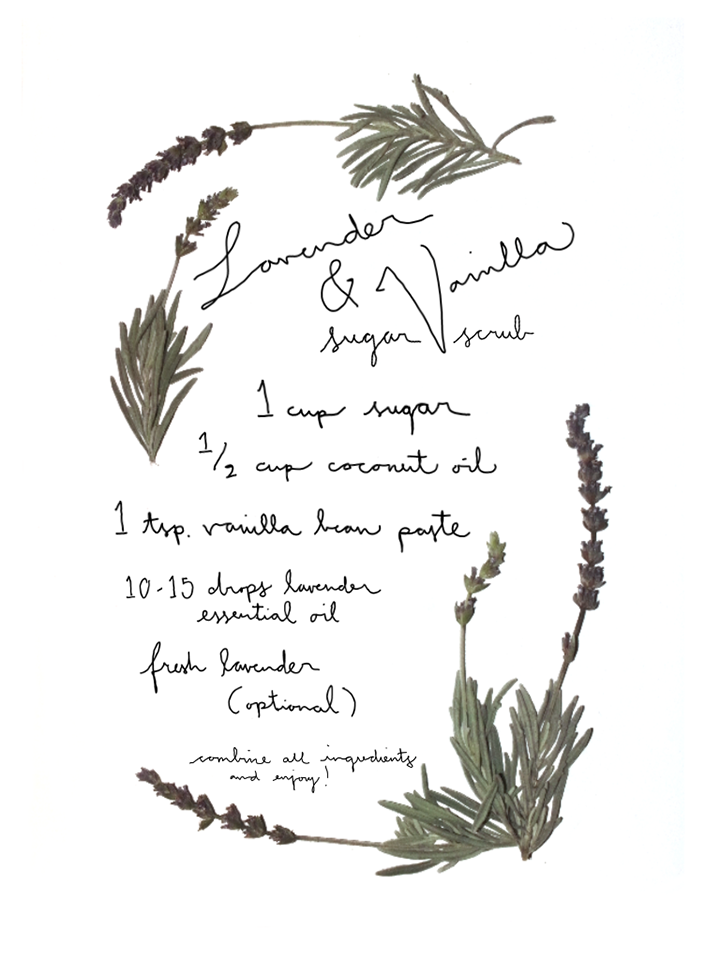 Lavender
& Vanilla
sugar scrub
1 cup sugar
1/2 cup coconut oil
1 tsp. vanilla bean paste
10-15 drops lavender
essential oil
fresh lavender
(optional)
combine all ingredients
and enjoy!